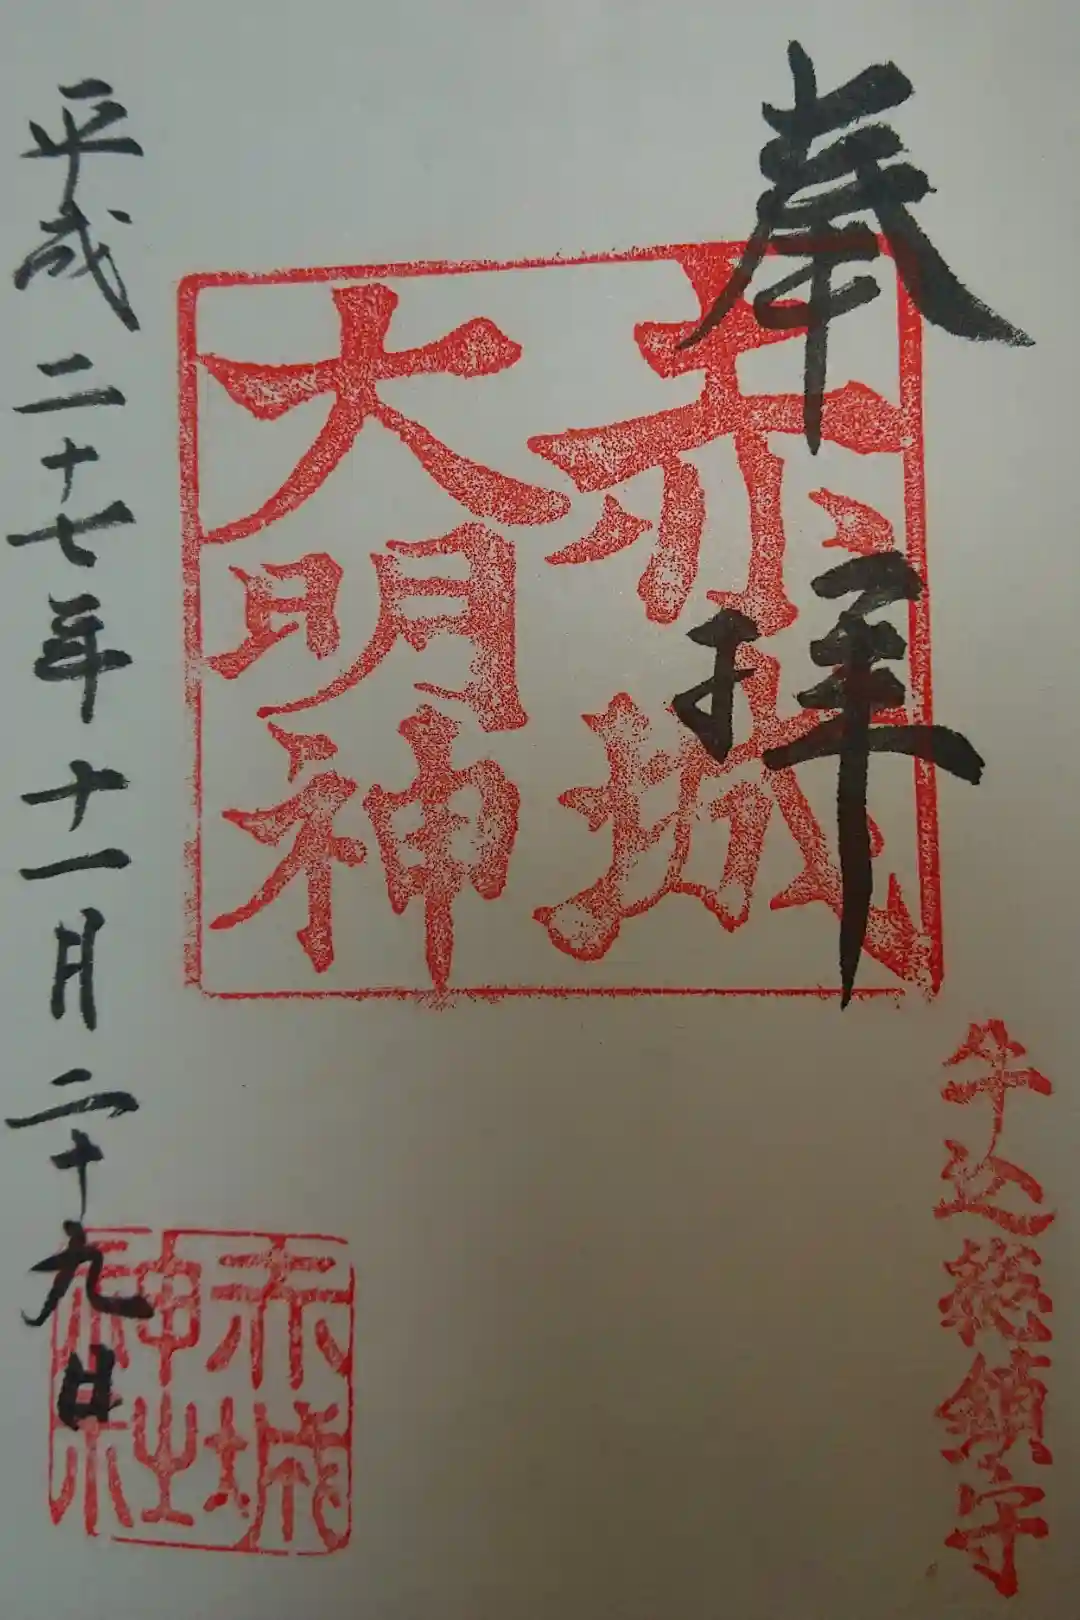 奉拝
赤城
大明神
牛込総鎮守
平成二十七年十一月二十九日
赤城
神社